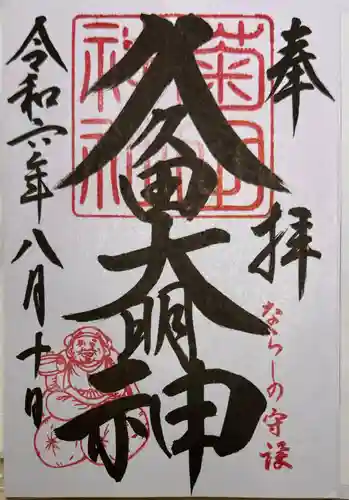 奉拝
ならしの守護
菊田神社
久久田大明神
令和六年八月十日